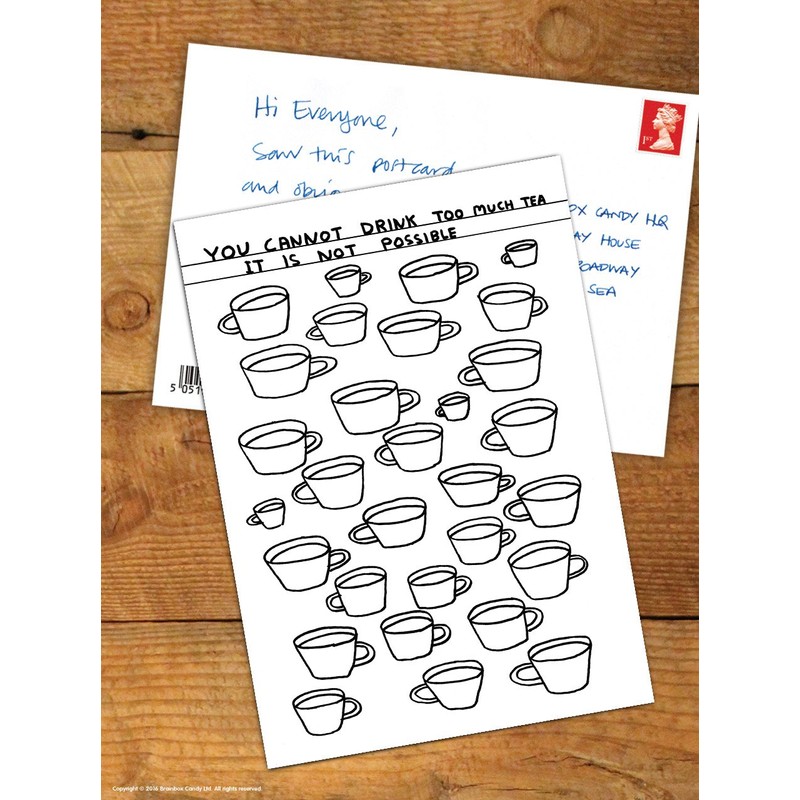 Hi Everyone,
Saw this postcard
and
1ST
CANDY HQ
HOUSE
SEA
YOU CANNOT DRINK TOO MUCH TEA
IT IS NOT POSSIBLE
Copyright © 2016 Brainbox Candy Ltd. All rights reserved.